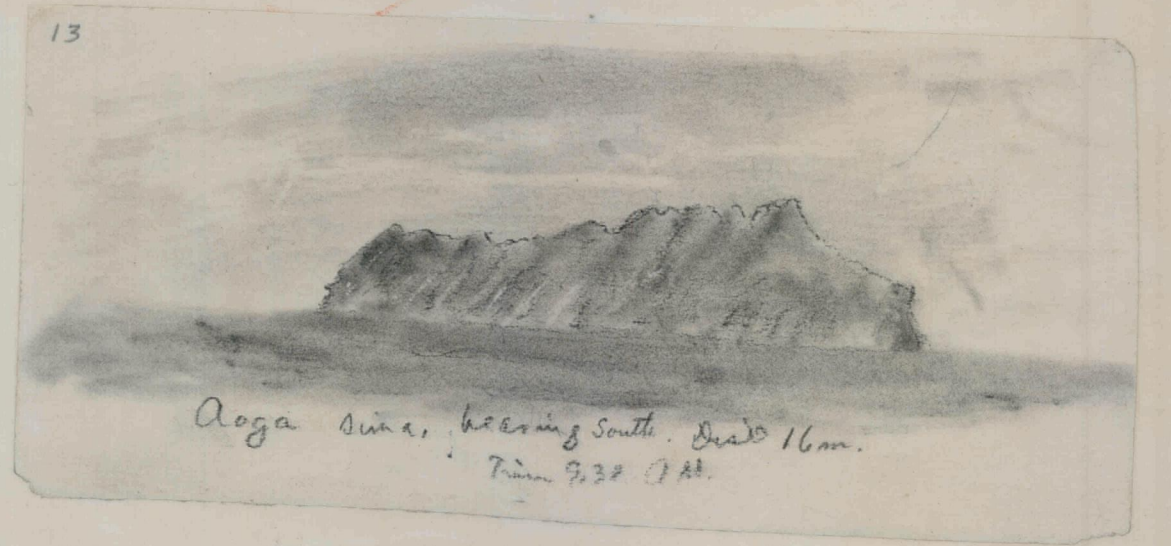 13
Aoga Sima, bearing South. Dist 16m.
Time 9.38 AM.